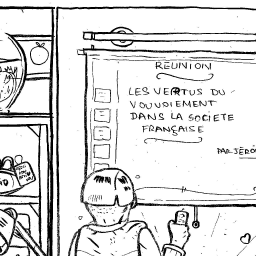 REUNION
LES VERTUS DU
VOUVOIEMENT
DANS LA SOCIETE
FRANÇAISE
PAR JÉRÔ